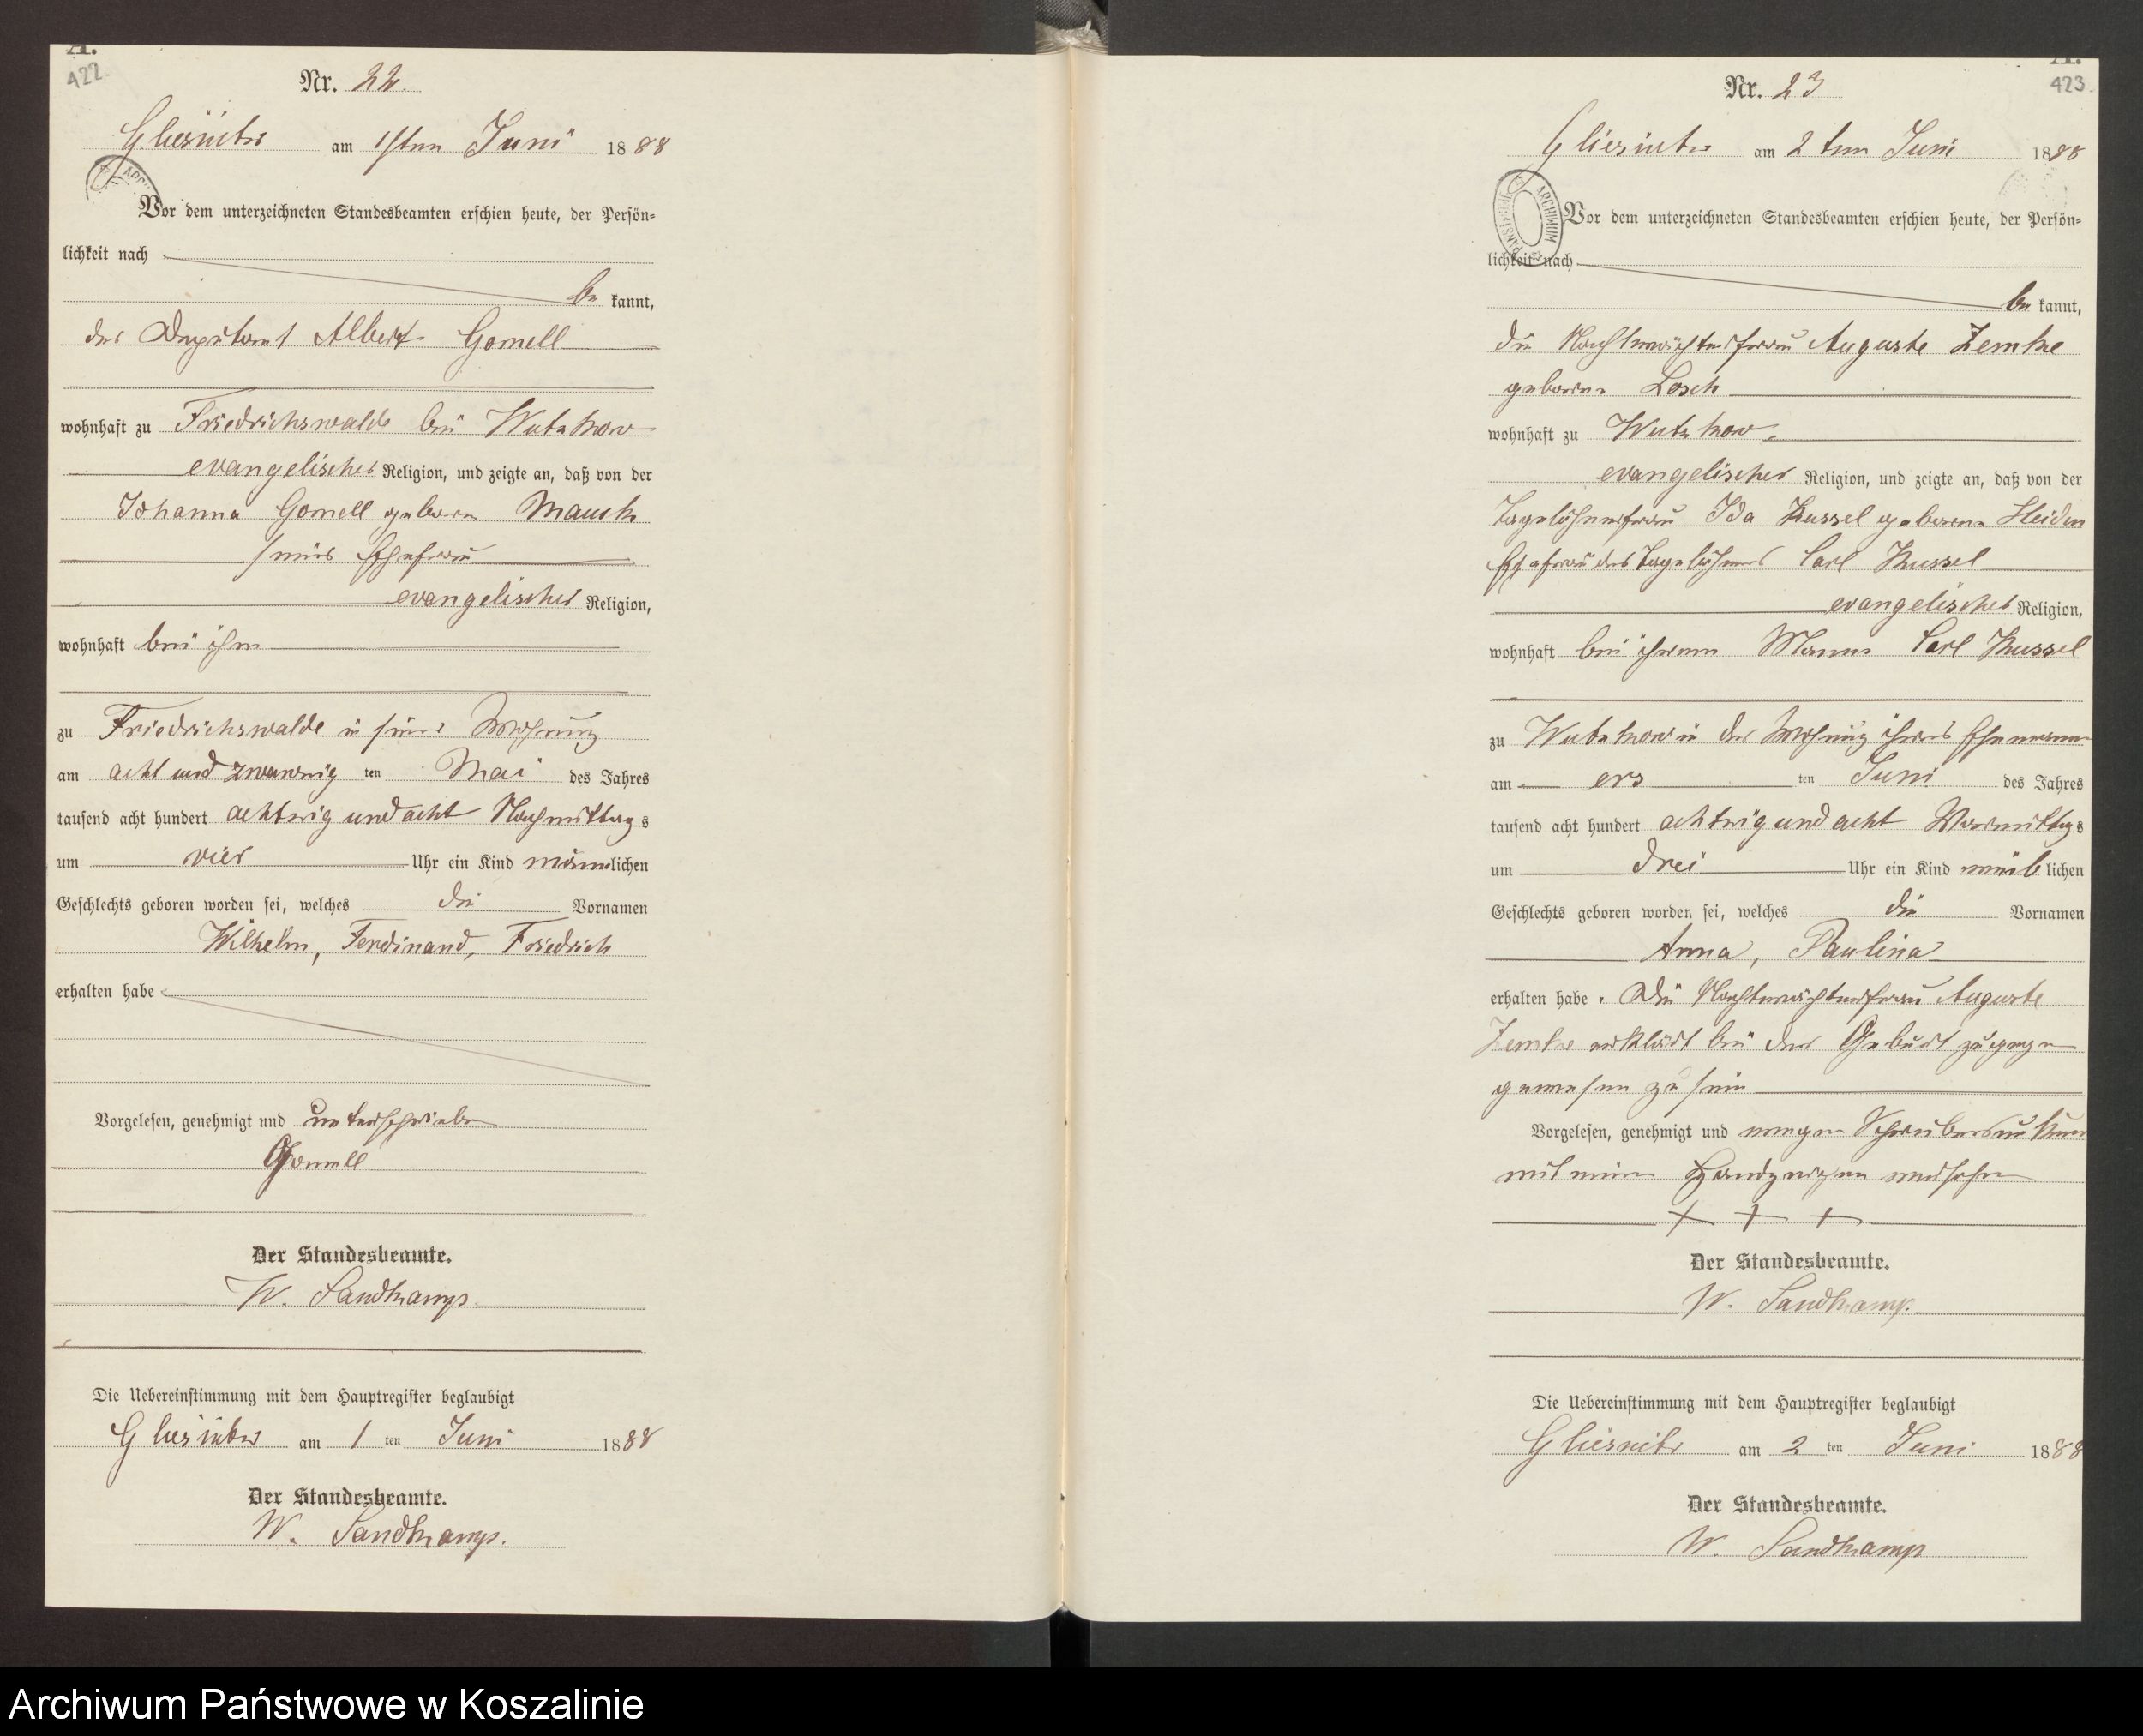 A.
422.
Nr. 22.
Gliesnitz am 1sten Juni 1888
Vor dem unterzeichneten Standesbeamten erschien heute, der Persön-
lichkeit nach
be kannt,
der Deputant Albert Gomell
wohnhaft zu Friedrichswalde bei Wutzkow
evangelischer Religion, und zeigte an, daß von der
Johanna Gomell geboren Mauch
seiner Ehefrau
evangelischer Religion,
wohnhaft bei ihm
zu Friedrichswalde in seiner Wohnung
am acht und zwanzig ten Mai des Jahres
tausend acht hundert achtzig und acht Nachmittags
um vier Uhr ein Kind männlichen
Geschlechts geboren worden sei, welches die Vornamen
Wilhelm, Ferdinand, Friedrich
erhalten habe
Vorgelesen, genehmigt und unterschrieben
Gomell
Der Standesbeamte.
W. Sandkamp.
Die Uebereinstimmung mit dem Hauptregister beglaubigt
Gliesnitz am 1 ten Juni 1888
Der Standesbeamte.
W. Sandkamp.
A.
423.
Nr. 23
Gliesnitz am 2 ten Juni 1888
ARCHIWUM
Vor dem unterzeichneten Standesbeamten erschien heute, der Persön-
lichkeit nach
be kannt,
die Nachtwächterfrau Auguste Zemke
geborene Losch
wohnhaft zu Wutzkow,
evangelischer Religion, und zeigte an, daß von der
Tagelöhnerfrau Ida Kussel geborene Heiden
Ehefrau des Tagelöhners Carl Kussel
evangelischer Religion,
wohnhaft bei ihrem Manne Carl Kussel
zu Wutzkow in der Wohnung ihres Ehemann
am ers ten Juni des Jahres
tausend acht hundert achtzig und acht Vormittags
um drei Uhr ein Kind weiblichen
Geschlechts geboren worden sei, welches die Vornamen
Anna, Paulina
erhalten habe. Die Nachtwächterfrau Auguste
Zemke erklärt bei der Geburt zugegen
gewesen zu sein
Vorgelesen, genehmigt und wegen Schreibensunkunde
mit einem Handzeichen versehen
+ + +
Der Standesbeamte.
W. Sandkamp.
Die Uebereinstimmung mit dem Hauptregister beglaubigt
Gliesnitz am 2 ten Juni 1888
Der Standesbeamte.
W. Sandkamp
Archiwum Państwowe w Koszalinie